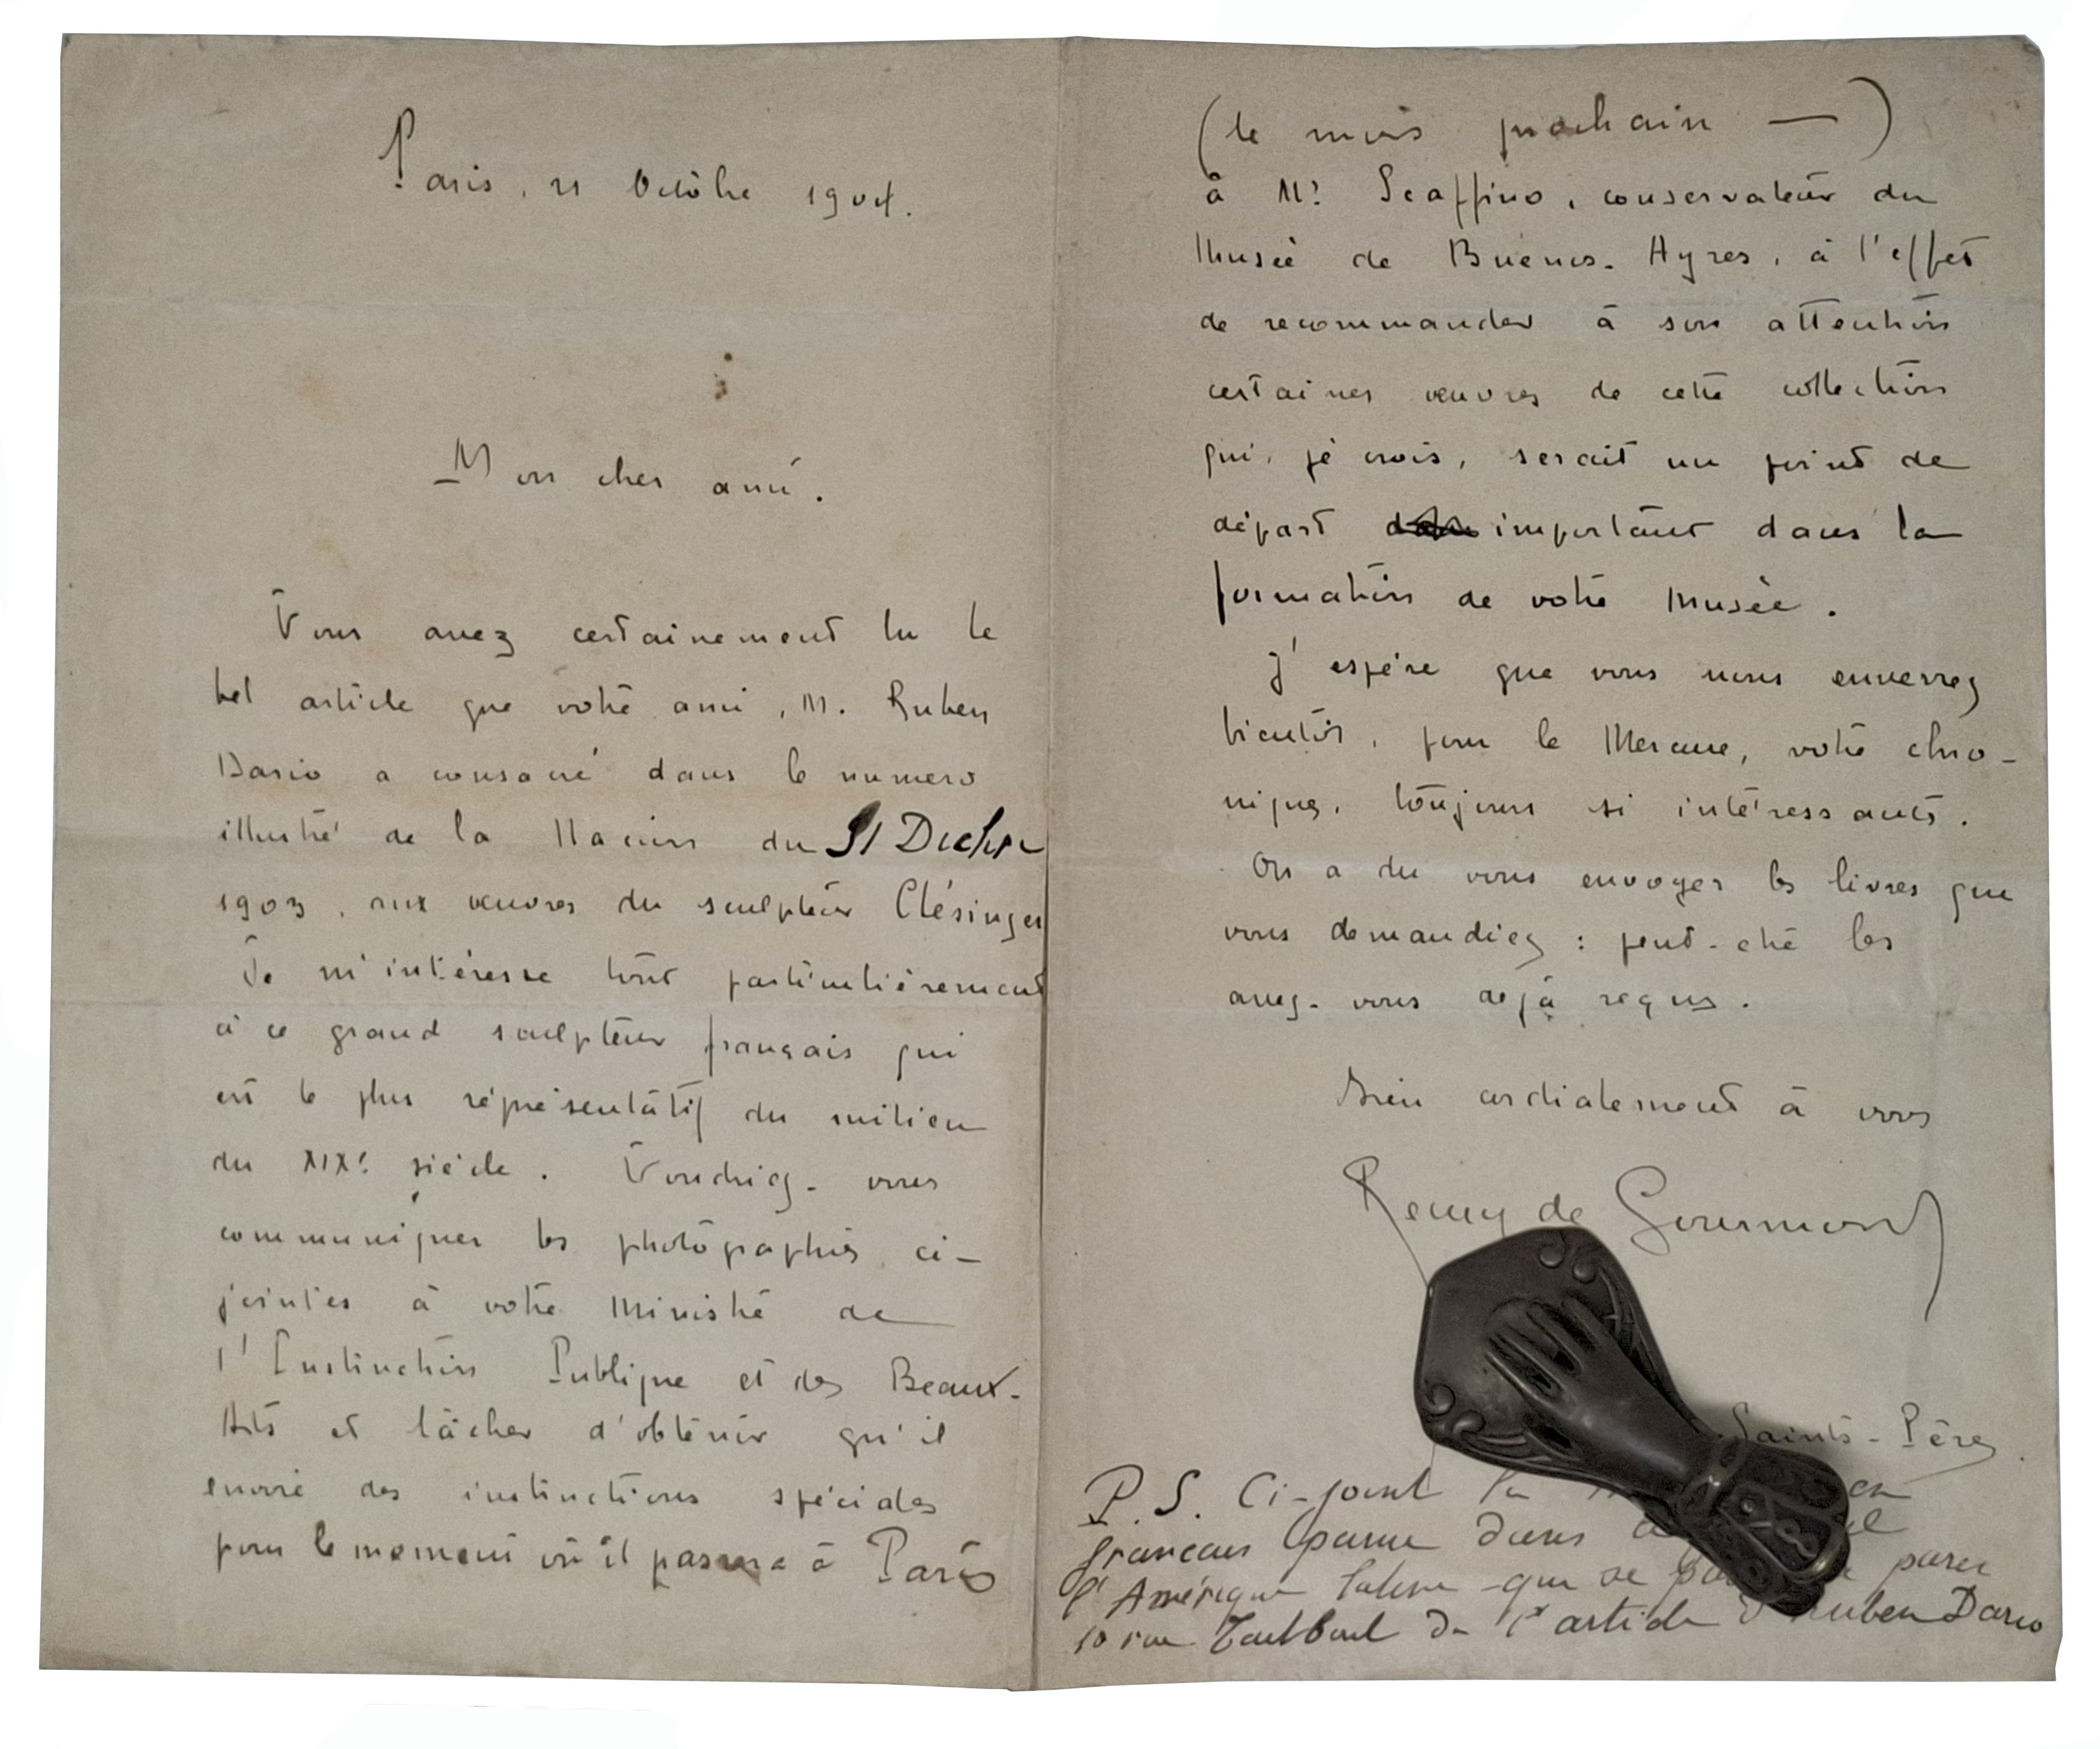 Paris, 21 Octobre 1904.
Mon cher ami.
Vous avez certainement lu le
bel article que votre ami, M. Ruben
Dario a consacré dans le numero
illustré de la Nacion du 31 Decbre
1903, aux œuvres du sculpteur Clésinger
Je m'intéresse tout particulièrement
à ce grand sculpteur français qui
est le plus représentatif du milieu
du XIXe siècle. Voudriez-vous
communiquer les photographies ci-
jointes à votre Ministre de
l'Instruction Publique et des Beaux-
Arts et tâcher d'obtenir qu'il
envoie des instructions spéciales
pour le moment où il passera à Paris
(le mois prochain —)
à Mr Scaffino, conservateur du
Musée de Buenos-Ayres, à l'effet
de recommander à son attention
certaines œuvres de cette collection
qui, je crois, serait un point de
départ important dans la
formation de votre Musée.
J'espère que vous nous enverrez
bientôt, pour le Mercure, votre chro-
nique, toujours si intéressante.
On a du vous envoyer les livres que
vous demandiez : peut-être les
avez-vous déjà reçus.
Bien cordialement à vous
Remy de Gourmont
Saints-Pères.
P.S. Ci-joint la en
francais parue dans
l'Amérique latine que se parue
10 rue Taitbout de l'article d Ruben Dario